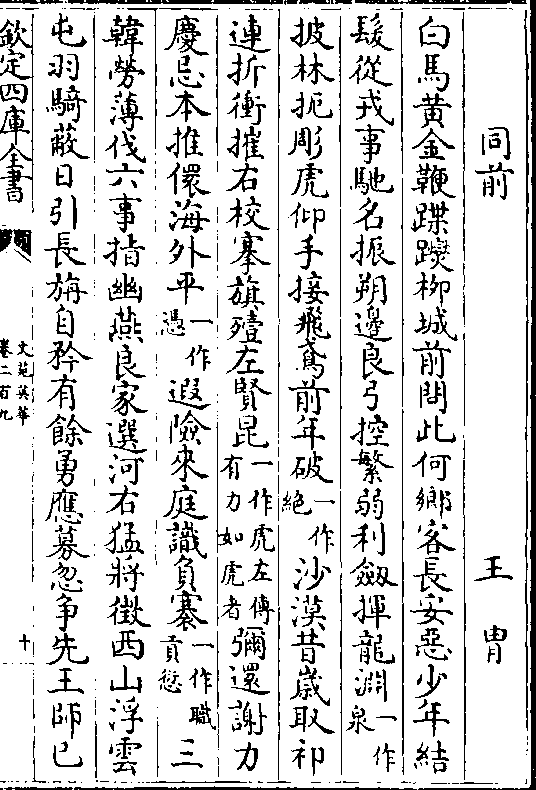 同前　王胄
白馬黄金鞭蹀躞栁城前問此何鄉客長安惡少年結
髮從戎事馳名振朔邊良弓控繁弱利劔揮龍淵一作泉
披林扼彫虎仰手接飛鳶前年破一作絶沙漠昔歲取祁
連折衝摧右校搴旗殪左賢昆一作虎左傳有力如虎者彌還謝力
慶忌本推儇海外平一作憑遐險來庭識負褰一作職貢愆三
韓勞薄伐六事指幽燕良家選河右猛將徴西山浮雲
屯羽騎蔽日引長旃自矜有餘勇應募忽争先王師已
欽定四庫全書
文苑英華
卷二百九
十